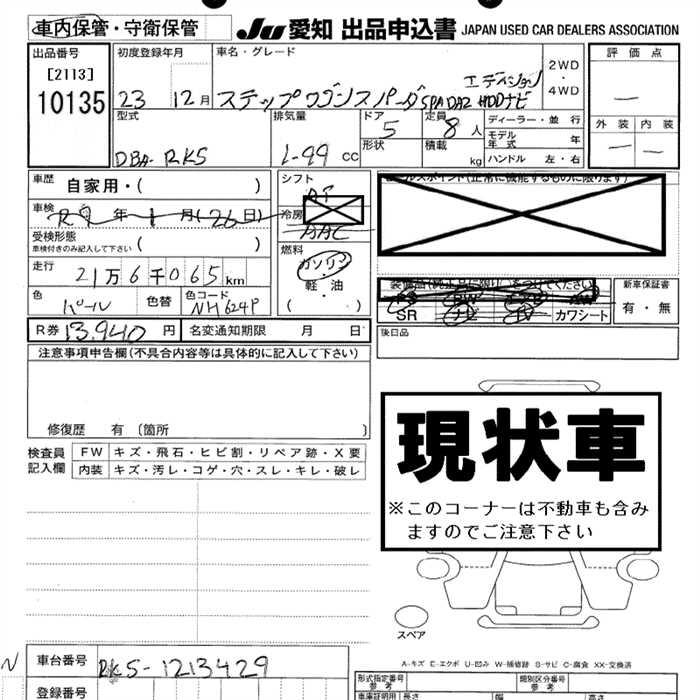 車内保管・守衛保管 JU 愛知 出品申込書 JAPAN USED CAR DEALERS ASSOCIATION
出品番号 初度登録年月 車名・グレード 2WD・4WD 評価点
[2113]
10135 23 12月 ステップワゴンスパーダ SPADAZ HDDナビ エディション —
型式 排気量 ドア 定員 ディーラー・並行 外装 内装
DBA-RK5 1-99 cc 5 8人 モデル年式 年 — —
形状 積載 kg ハンドル 左・右
車歴 自家用・( ) シフト AT
車検 R2年1月(26日) 冷房 AAC
受検形態 ( )
車検付きのみ記入して下さい
セールスポイント(正常に機能するものに限ります)
走行 21万6千065km 燃料 ガソリン・軽・油 ( )
色 パール 色替 色コード NH624P
装備品(純正品に限り)○をつけてください 新車保証書
PS PW AW 有・無
SR ナビ TV カワシート
R券 13,940円 名変通知期限 月 日 後日品
注意事項申告欄(不具合内容等は具体的に記入して下さい)
修復歴 有 (箇所 )
検査員記入欄 FW キズ・飛石・ヒビ割・リペア跡・X要
内装 キズ・汚レ・コゲ・穴・スレ・キレ・破レ
現状車
※このコーナーは不動車も含み
ますのでご注意下さい
スペア
A-キズ E-エクボ U-凹み W-補修跡 S-サビ C-腐食 XX-交換済
N 車台番号 RK5-1213429
登録番号
形式指定番号 参考 類別区分番号 参考
車庫証明用 長さ 幅 高さ